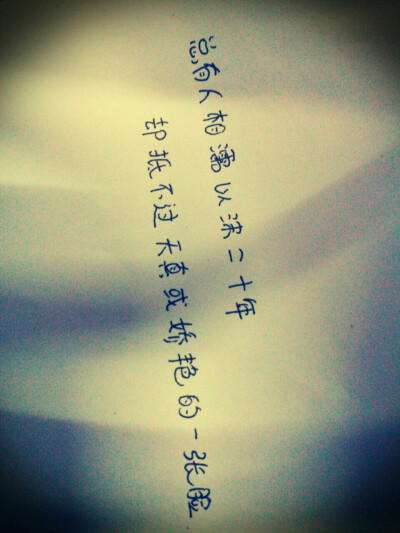 总有人相濡以沫二十年
却抵不过天真或娇艳的一张脸